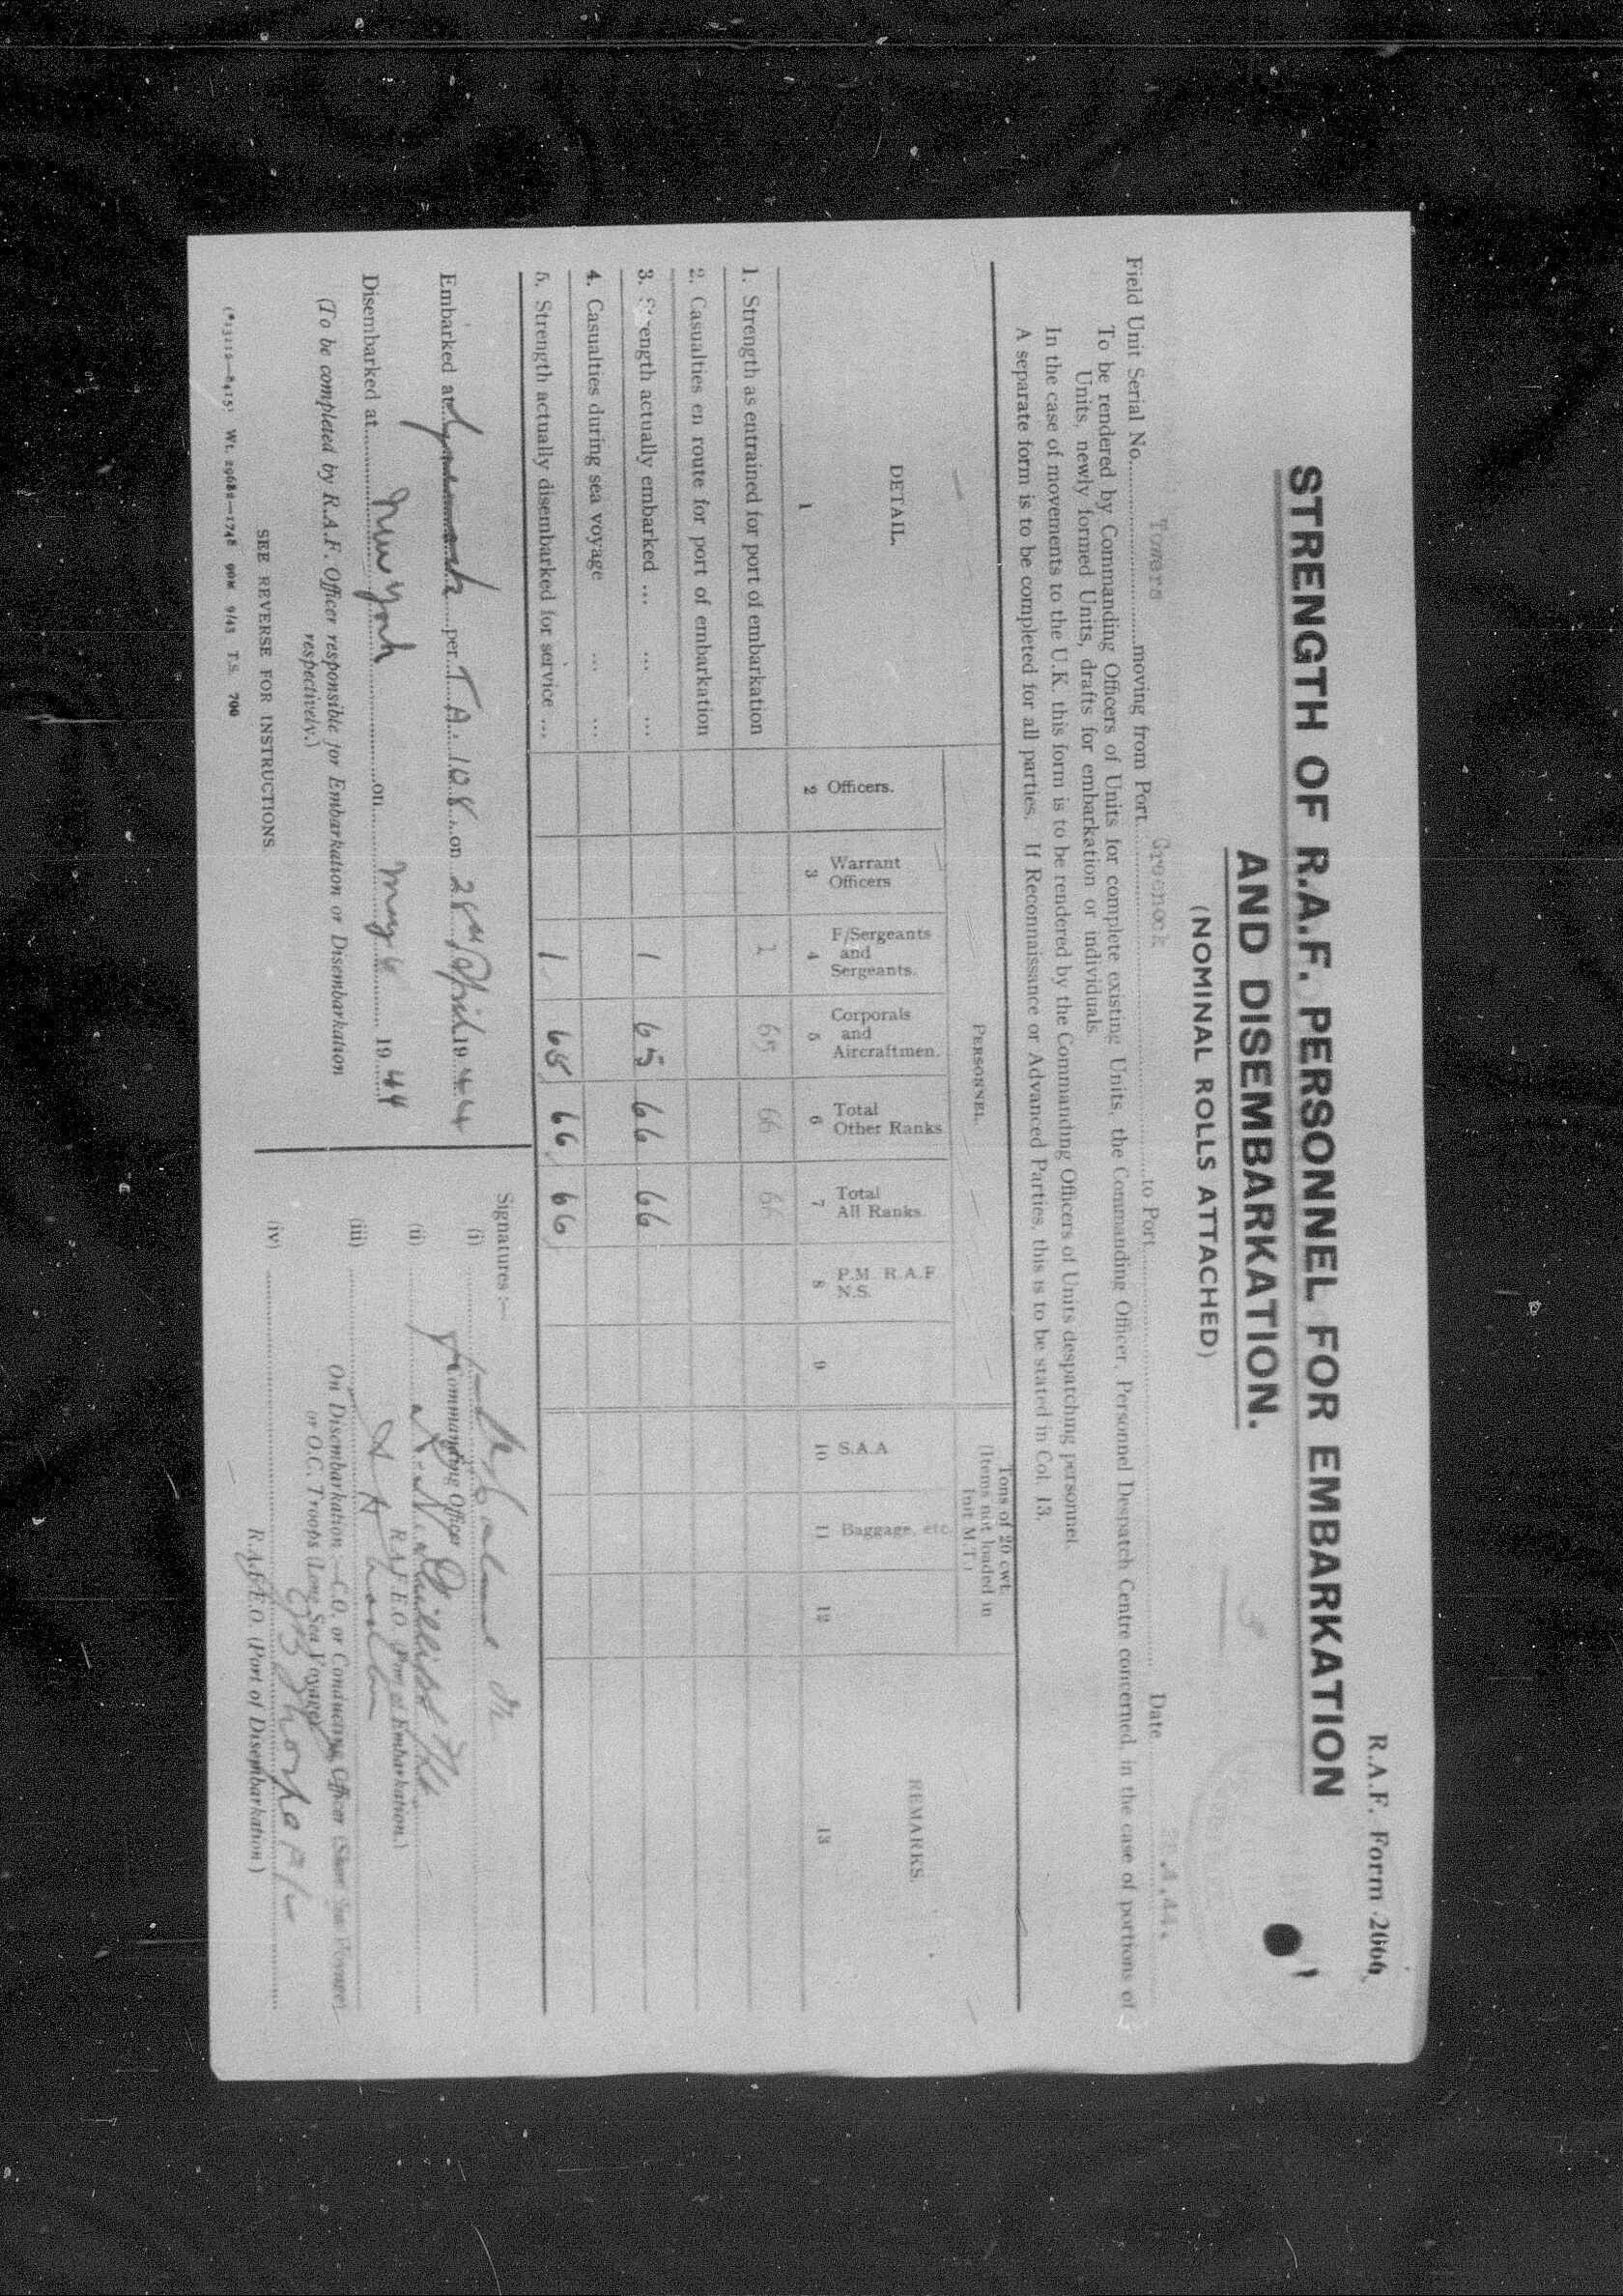 R.A.F. Form 2066
STRENGTH OF R.A.F. PERSONNEL FOR EMBARKATION
AND DISEMBARKATION.
(NOMINAL ROLLS ATTACHED)
Field Unit Serial No. Towers moving from Port Greenock to Port Date .4.44.
To be rendered by Commanding Officers of Units for complete existing Units, the Commanding Officer, Personnel Despatch Centre concerned, in the case of portions of
Units, newly formed Units, drafts for embarkation or individuals.
In the case of movements to the U.K. this form is to be rendered by the Commanding Officers of Units despatching personnel
A separate form is to be completed for all parties. If Reconnaissance or Advanced Parties, this is to be stated in Col. 13.
PERSONNEL.
Tons of 20 cwt.
(Items not loaded in
Unit M.T.)
DETAIL. Officers. Warrant Officers F/Sergeants and Sergeants. Corporals and Aircraftmen. Total Other Ranks Total All Ranks. P.M. R.A.F. N.S. S.A.A Baggage, etc. REMARKS.
1 2 3 4 5 6 7 8 9 10 11 12 13
1. Strength as entrained for port of embarkation 1 65 66 66
2. Casualties en route for port of embarkation
3. Strength actually embarked ... ... ... 1 65 66 66
4. Casualties during sea voyage ... ...
5. Strength actually disembarked for service ... 1 65 66 66
Embarked at per T.A. 108 on 28th April 1944
Disembarked at New York on May 6 1944
(To be completed by R.A.F. Officer responsible for Embarkation or Disembarkation
respectively.)
SEE REVERSE FOR INSTRUCTIONS.
Wt. 29682—1748 90M 9/43 T.S. 700
Signatures :—
(i)
Commanding Officer
(ii)
R.A.F.E.O. (Port of Embarkation.)
(iii)
On Disembarkation :—C.O. or Conducting Officer (Short Sea Voyage)
or O.C. Troops (Long Sea Voyage)
(iv)
R.A.F.E.O. (Port of Disembarkation)